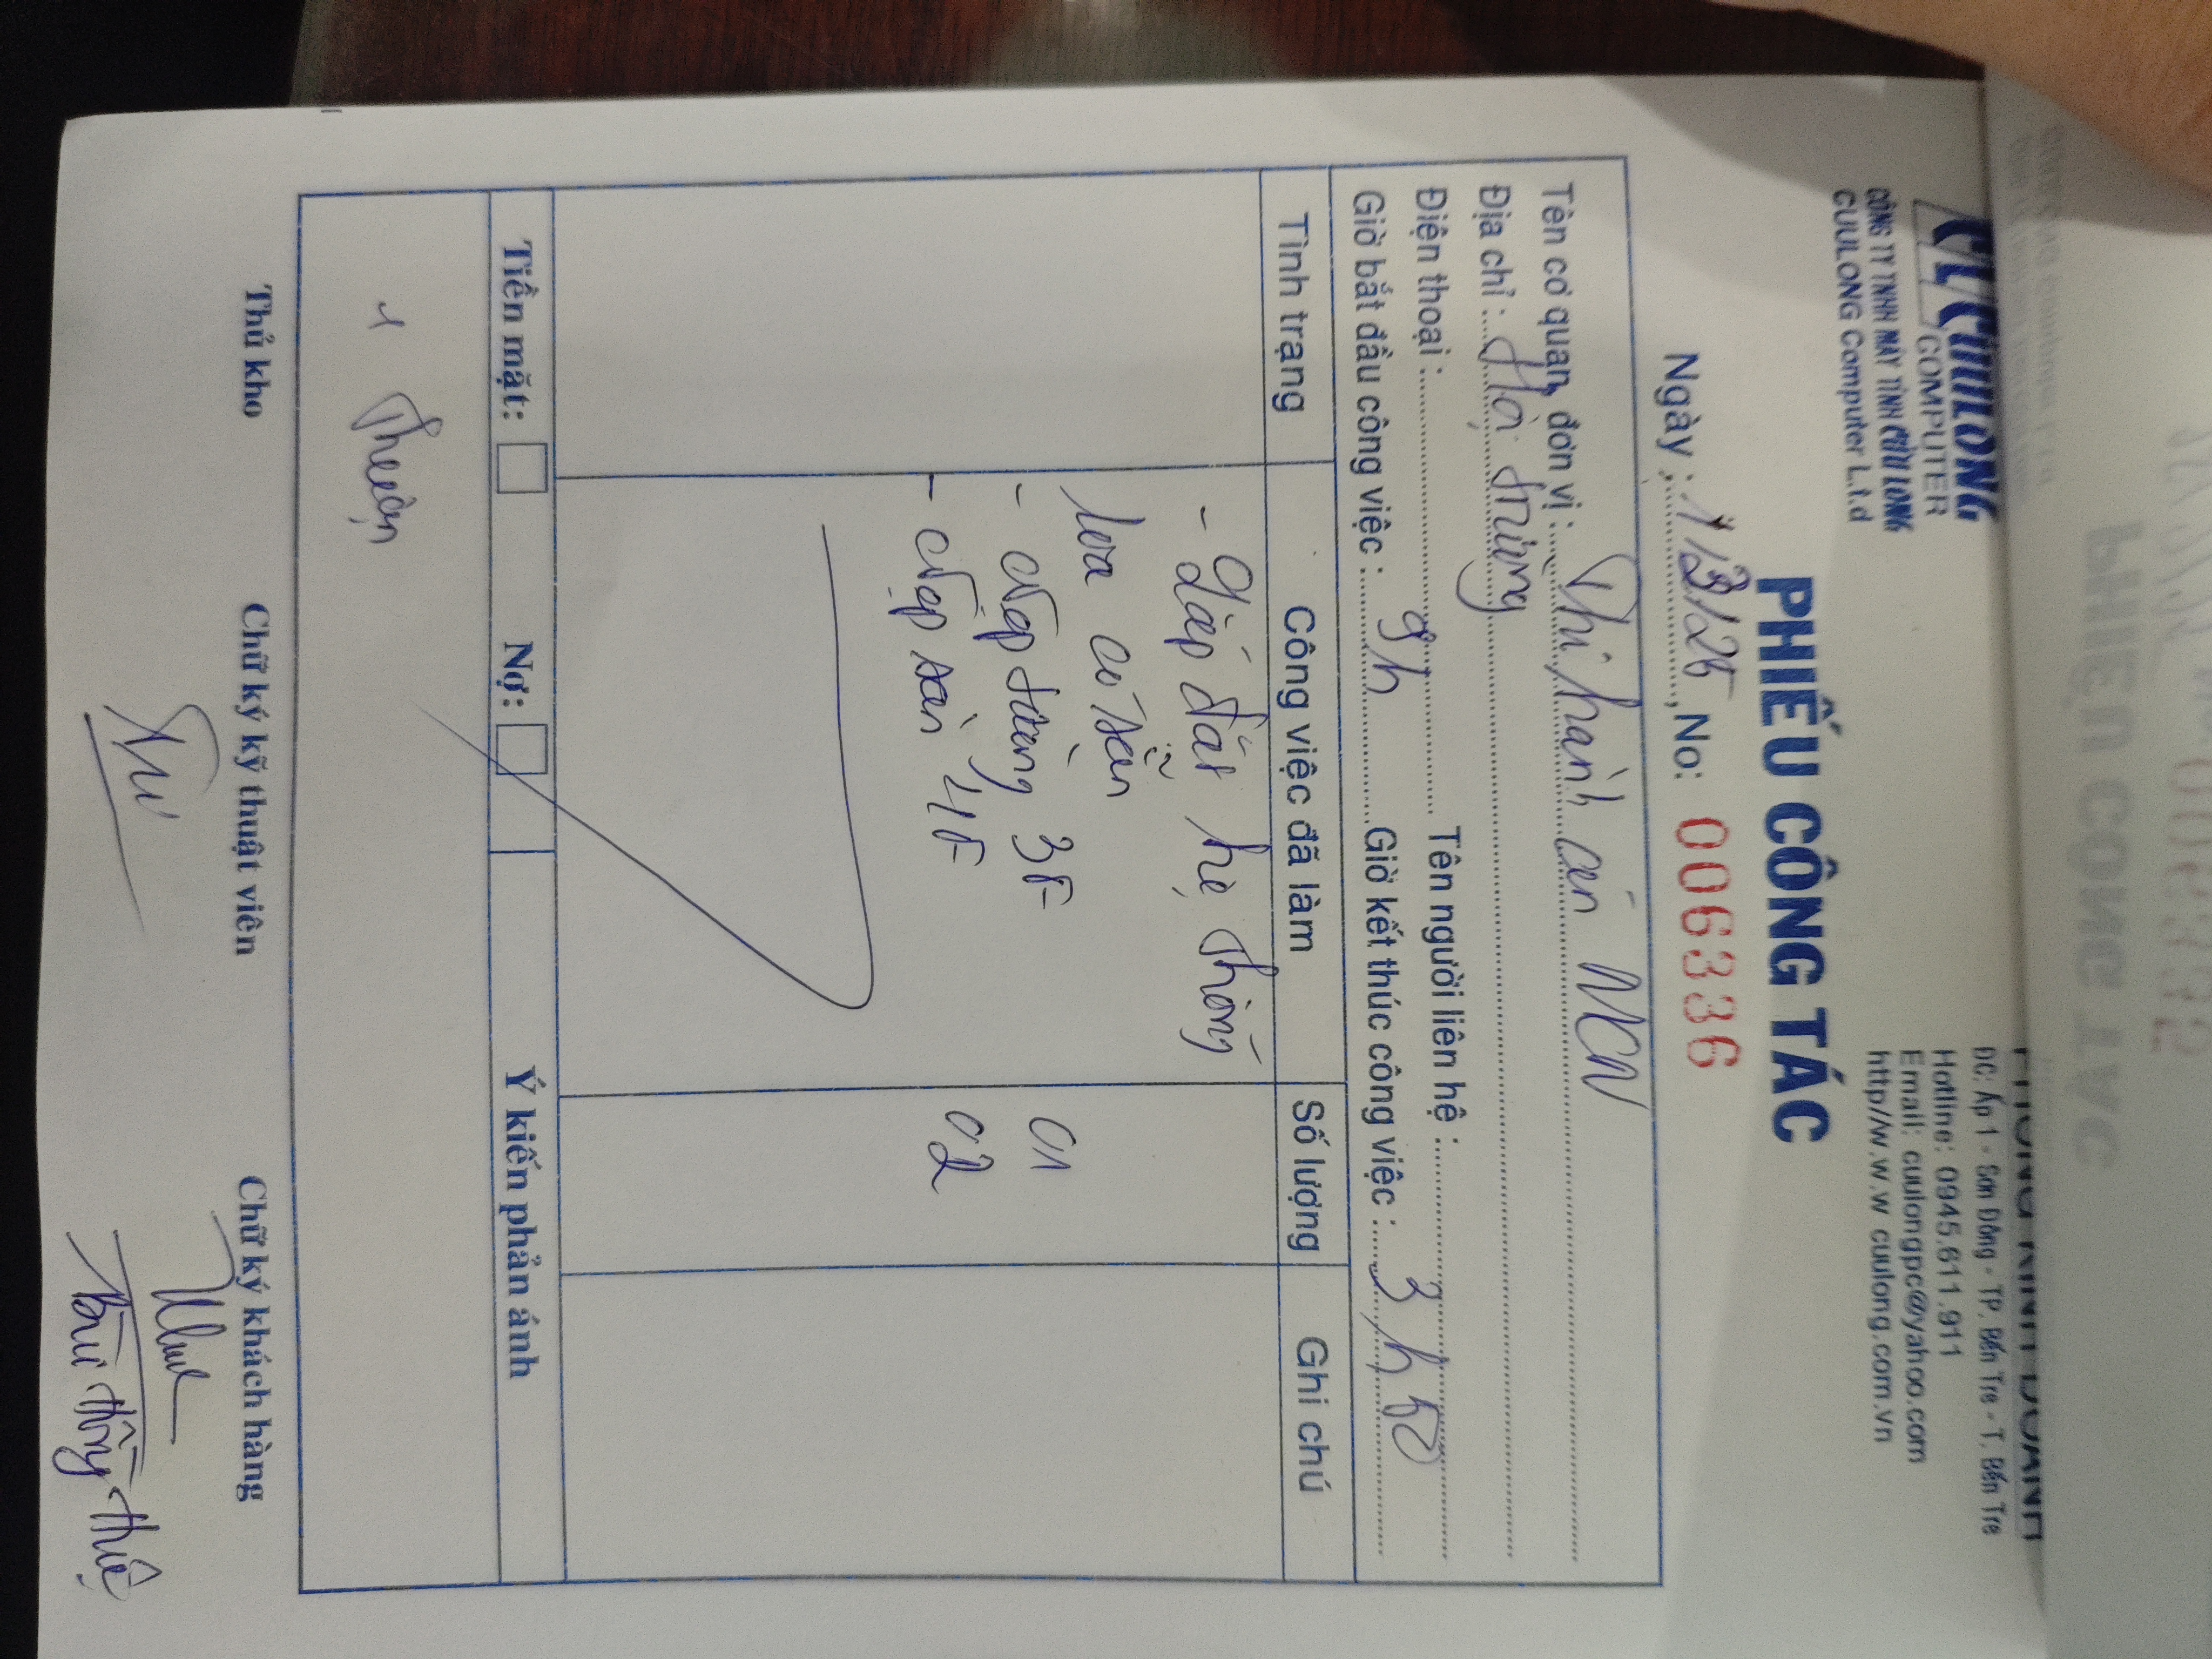 CL CUULONG
COMPUTER
CÔNG TY TNHH MÁY TÍNH CỬU LONG
CUULONG Computer L.t.d
PHÒNG KINH DOANH
ĐC: Ấp 1 - Sơn Đông - TP. Bến Tre - T. Bến Tre
Hotline: 0945.611.911
Email: cuulongpc@yahoo.com
http//w.w.w cuulong.com.vn
PHIẾU CÔNG TÁC
Ngày : 1/3/25, No: 006336
Tên cơ quan, đơn vị : Thi hành án MCN
Địa chỉ :
Điện thoại : Tên người liên hệ :
Giờ bắt đầu công việc : 9h Giờ kết thúc công việc : 3h50
Tình trạng Công việc đã làm Số lượng Ghi chú
- Lắp đặt hệ thống
loa có sẵn
- Nẹp tường 3F 01
- Nẹp sàn 4F 02
Tiền mặt: Nợ: Ý kiến phản ánh
Thuận
Thủ kho Chữ ký kỹ thuật viên Chữ ký khách hàng